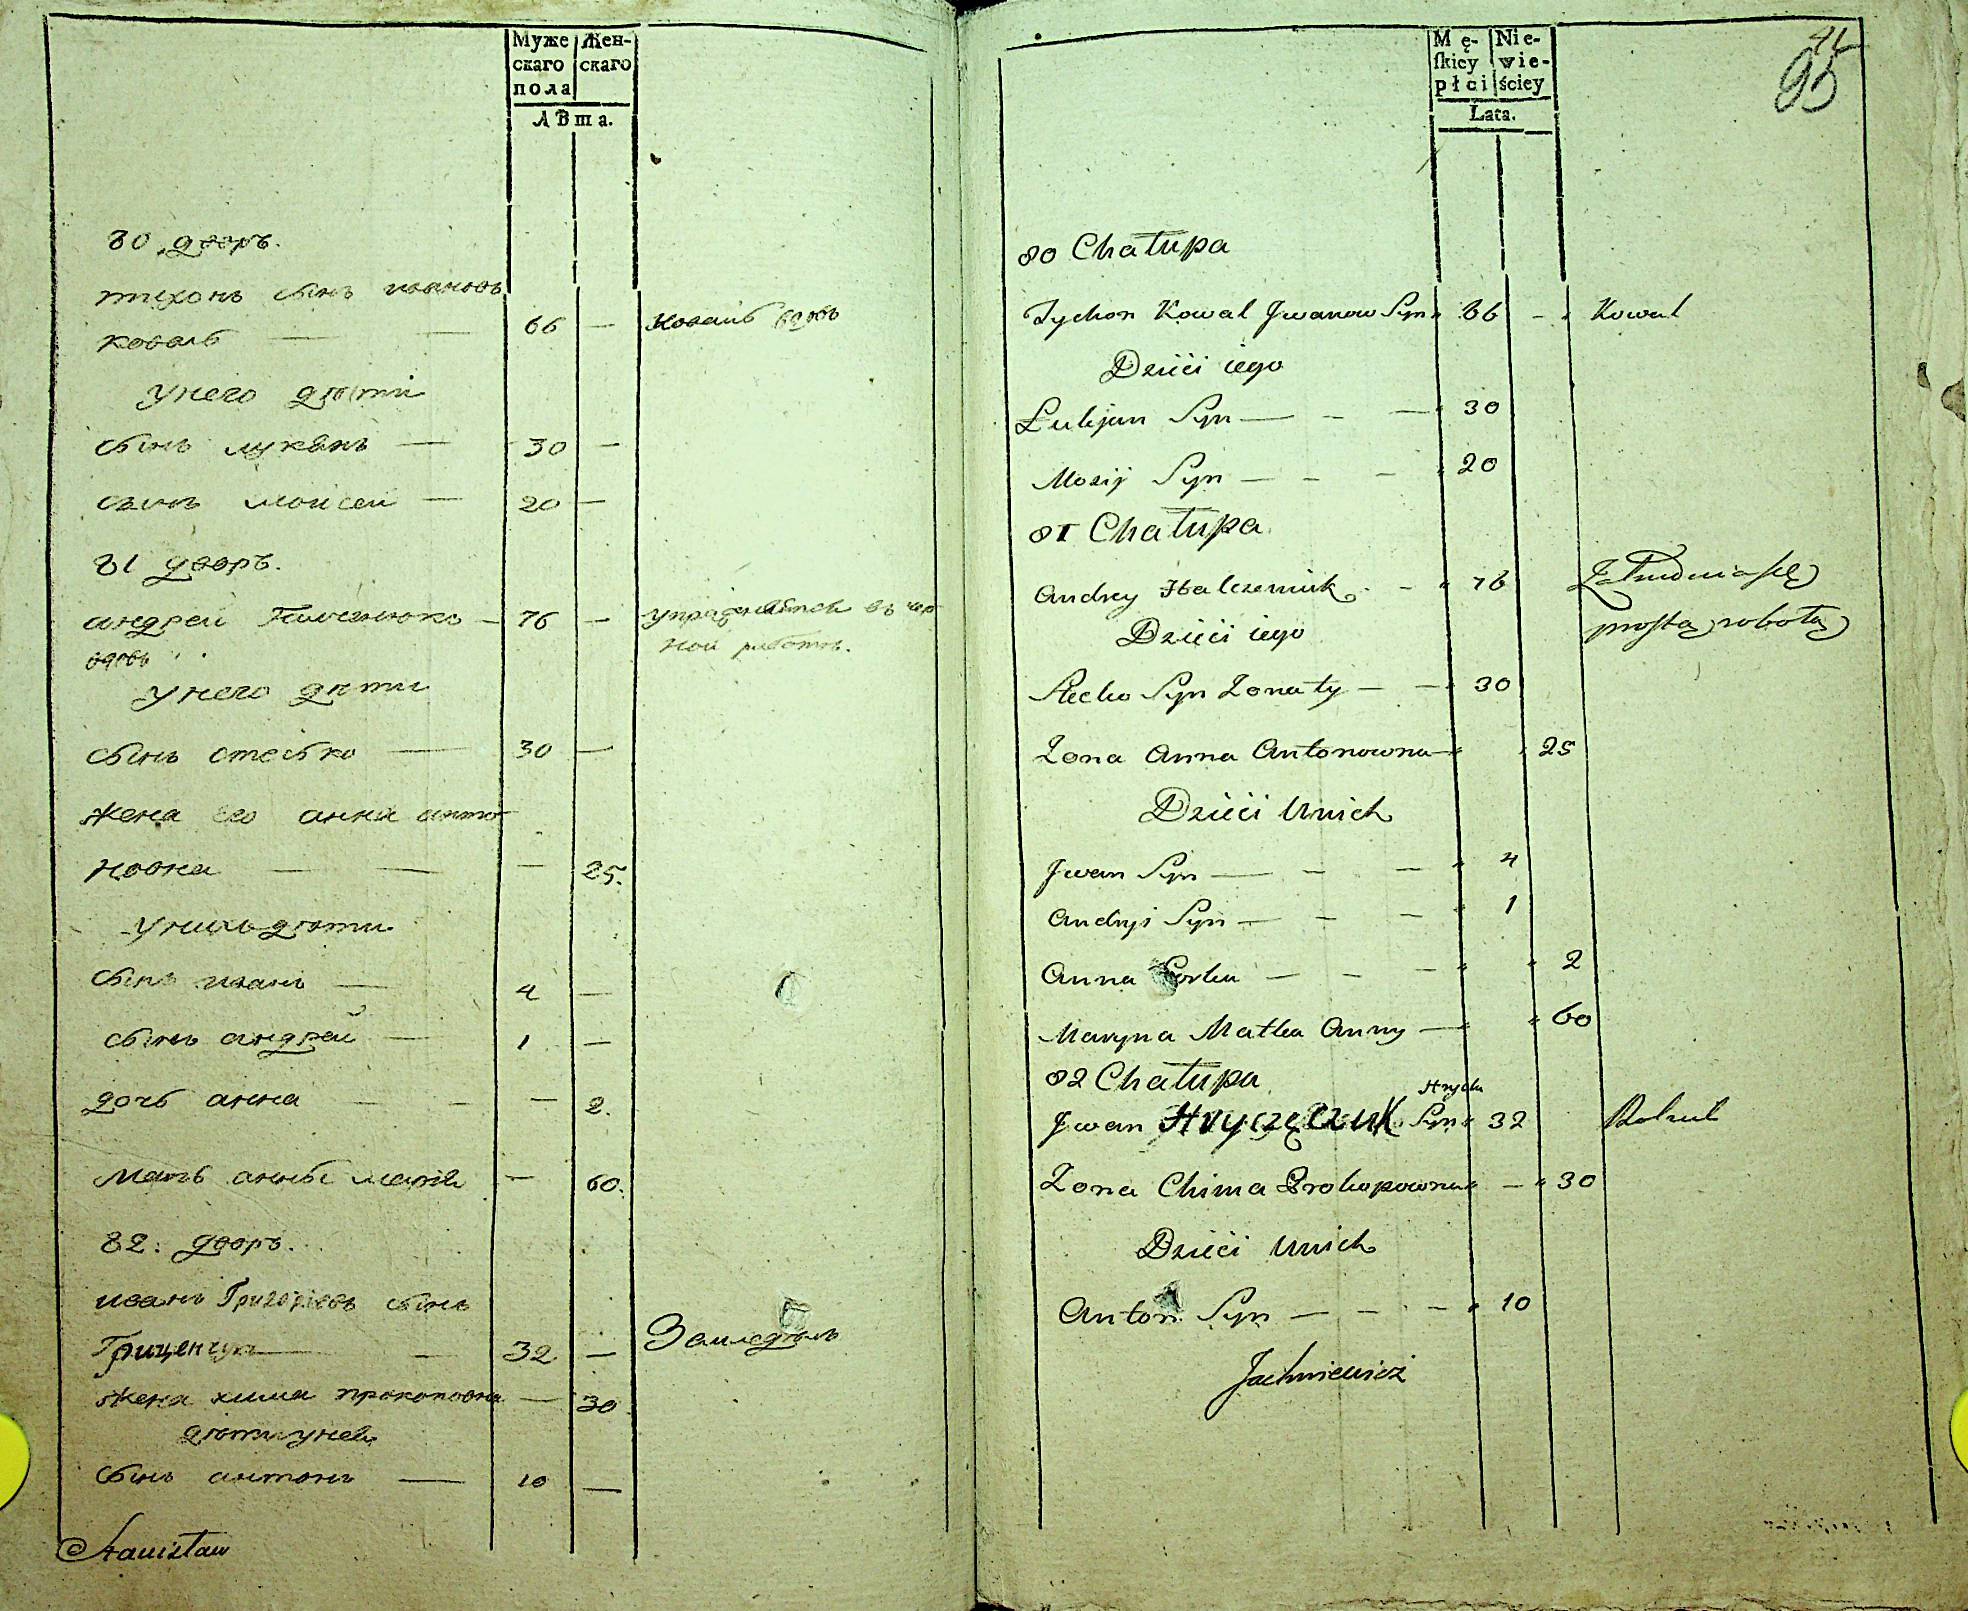 Муже
скаго
пола
Жен-
скаго
ЛѢта.
80 дворъ.
тихонъ сынъ ивановъ
коваль — — 66 — коваль вдовъ
У него дѣти
сынъ лукянъ — 30 —
сынъ моисей — 20 —
81 дворъ.
андрей — 76 — упражняется въ чер
вдовъ ной работѣ.
У него дѣти
сынъ стецько — 30 —
жена его анна анто
новна — — — 25.
У нихъ дѣти
сынъ иванъ — 4 —
сынъ андрей — 1 —
дочь анна — — — 2.
мать анны — 60.
82. дворъ.
иванъ Григоріевъ сынъ
Гриценчук — — 32 — Земледѣль
жена хима прокоповна — 30
дѣти у нев
сынъ антонъ — 10 —
Stanisław
Mę-
ſkiey
płci
Nie-
wie-
ściey
Lata.
95
80 Chałupa
Tychon Kowal Jwanow Syn 66 - Kowal
Dzieci iego
Łukjan Syn — - — 30
Mosij Syn — - - 20
81 Chałupa
Andrey Halczeniuk - 76 Zatrudnia się
Dzieci iego prostą robotą
Stecko Syn Żonaty — — 30
Żona Anna Antonowna 25
Dzieci Unich
Jwan Syn — - — 4
Andryi Syn — - — 1
Anna Corka — — — 2
Maryna Matka Anny — 60
82 Chałupa
Hrycka
Jwan Hryczęczuk Syn 32 Rolnik
Żona Chima Prokopowna — 30
Dzieci Unich
Anton Syn — - — 10
Jachniewicz